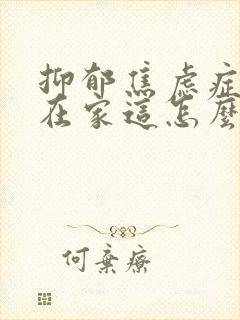 抑郁焦虑症
在家這怎麼
何棄療